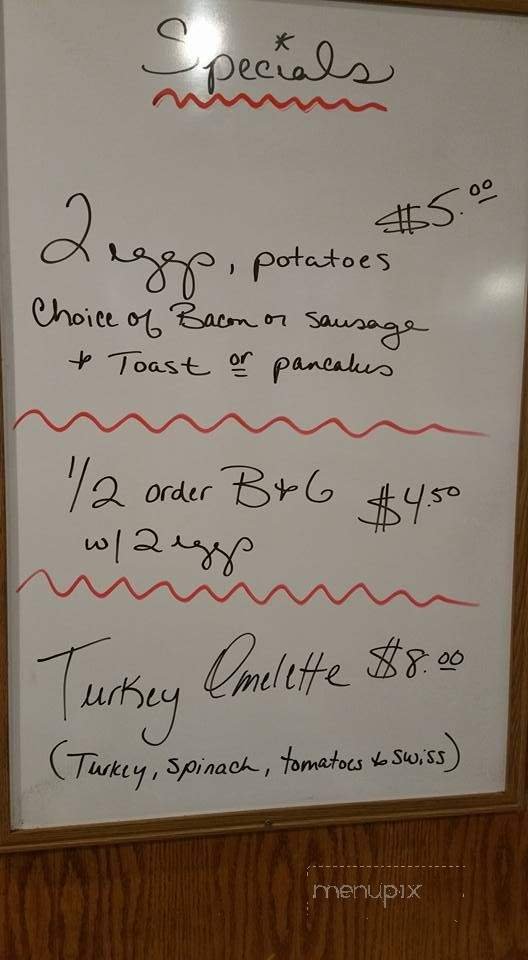 Specials
*
$5.00
2 eggs, potatoes
Choice of Bacon or sausage
+ Toast or pancakes
1/2 order B+G $4.50
w/ 2 eggs
Turkey Omelette $8.00
(Turkey, spinach, tomatoes & swiss)
menupix